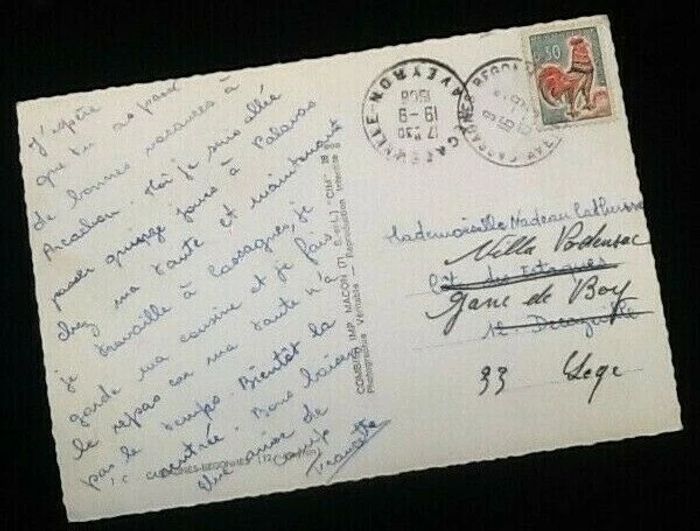 J'espère
que tu as passé
de bonnes vacances à
Arcachon. Moi je suis allée
passer quinze jours à Palavas
chez ma tante et maintenant
je travaille à Cassagnes, je
garde ma cousine et je fais
le repas car ma tante n'a
pas le temps. Bientôt la
rentrée. Bons baisers
Une amie de
camp
Francette
CASSAGNES-BEGONHES (12
COMBIER IMP. MACON (71
"CIM"
Photographie Véritable — Reproduction Interdite
AVEYRON
17 H 30
19-9
1968
0,30
Mademoiselle Nadeau Catherine
Villa Podensac
Cité des Estaques
Gare de Boy
12 Decazeville
33 Lege